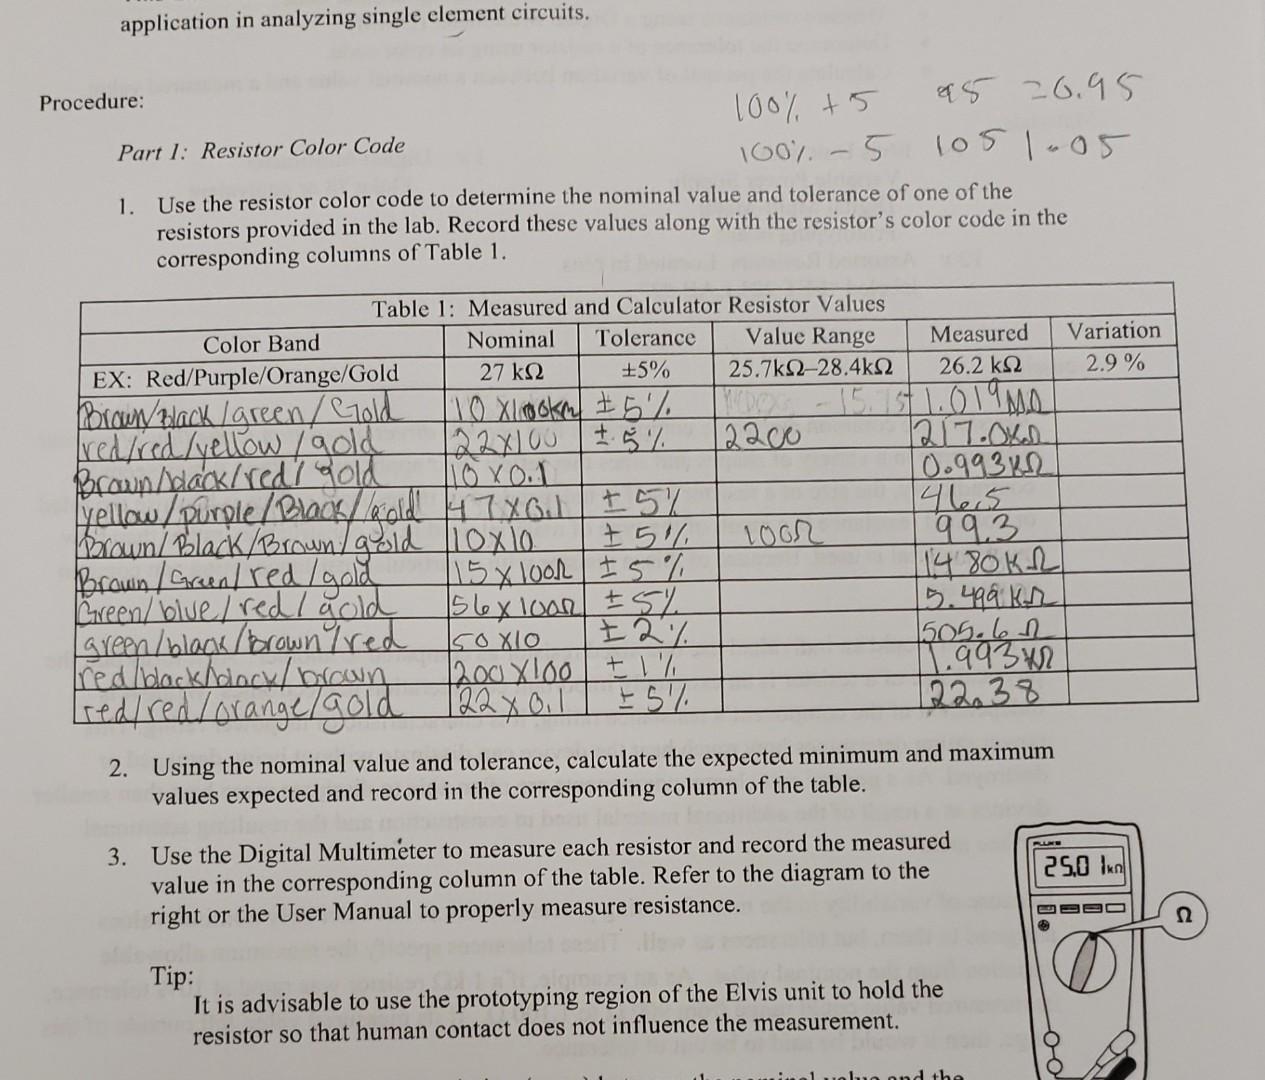 application in analyzing single element circuits.
100% + 5 95 = 0.95
Procedure:
100% - 5 105 1.05
Part 1: Resistor Color Code
1. Use the resistor color code to determine the nominal value and tolerance of one of the
resistors provided in the lab. Record these values along with the resistor's color code in the
corresponding columns of Table 1.
Table 1: Measured and Calculator Resistor Values
Color Band Nominal Tolerance Value Range Measured Variation
EX: Red/Purple/Orange/Gold 27 kΩ ±5% 25.7kΩ–28.4kΩ 26.2 kΩ 2.9 %
Brown/Black/green/Gold 10 X100kΩ ±5% - 15.75 1.019MΩ
red/red/yellow/gold 22X100 ±5% 2200 217.0KΩ
Brown/black/red/gold 10 X0.1 0.993KΩ
yellow/purple/Black/gold 47X0.1 ±5% 46.5
Brown/Black/Brown/gold 10X10 ±5% 100Ω 99.3
Brown/Green/red/gold 15X100Ω ±5% 14.80KΩ
Green/blue/red/gold 56X100Ω ±5% 5.499KΩ
green/black/brown/red 50X10 ±2% 505.6Ω
red/black/black/brown 200X100 ±1% 1.993KΩ
red/red/orange/gold 22X0.1 ±5% 22.38
2. Using the nominal value and tolerance, calculate the expected minimum and maximum
values expected and record in the corresponding column of the table.
3. Use the Digital Multimeter to measure each resistor and record the measured
value in the corresponding column of the table. Refer to the diagram to the
right or the User Manual to properly measure resistance.
FLUKE
25.0 1kΩ
Ω
Tip:
It is advisable to use the prototyping region of the Elvis unit to hold the
resistor so that human contact does not influence the measurement.
nominal value and the